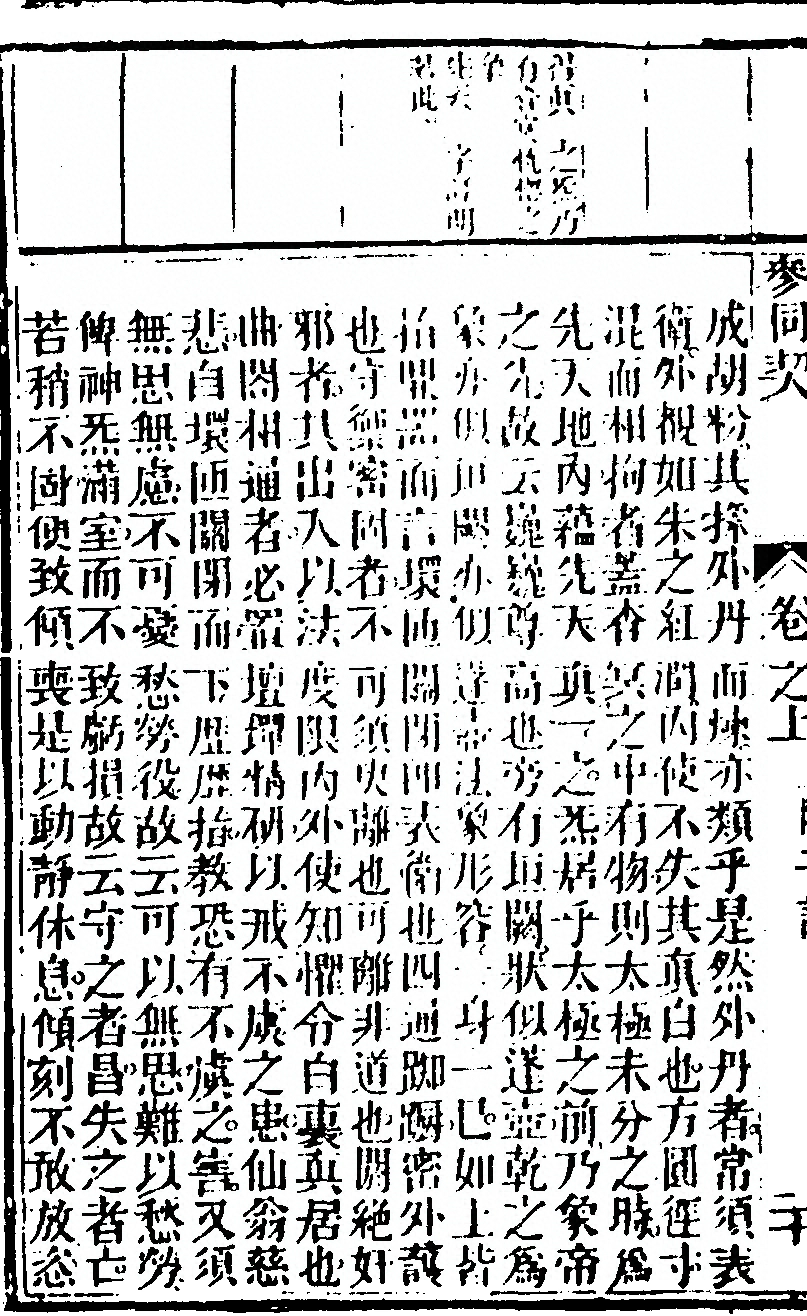 參同契
卷之上
二十
成胡粉其採外丹而煉亦類乎是然外丹者常須表
衛外視如朱之紅澗内使不失其真白也方圓徑寸
混而相拘者蓋杳冥之中有物則太極未分之時為
先天地内蘊先天真一之炁居乎太極之前乃象帝
之先故云巍巍尊高也旁有垣闕狀似蓬壺乾之為
象亦似垣闕亦似蓬壺法象形容一身一已如上皆
指閞器而言環匝關閉即表衛也四通踟躕密外護
也守禦密固者不可須臾離也可離非道也閼絶奸
邪者其出入以法度限内外使知懼令白裏真居也
曲閣相通者必置壇墠精研以戒不虞之患仙翁慈
悲自環匝關閉而下歷歷指教恐有不虞之害又須
無思無慮不可憂愁勞役故云可以無思難以愁勞
俾神炁滿室而不致虧損故云守之者昌失之者亡
若稍不固使致傾喪是以動靜休息傾刻不敢放恣